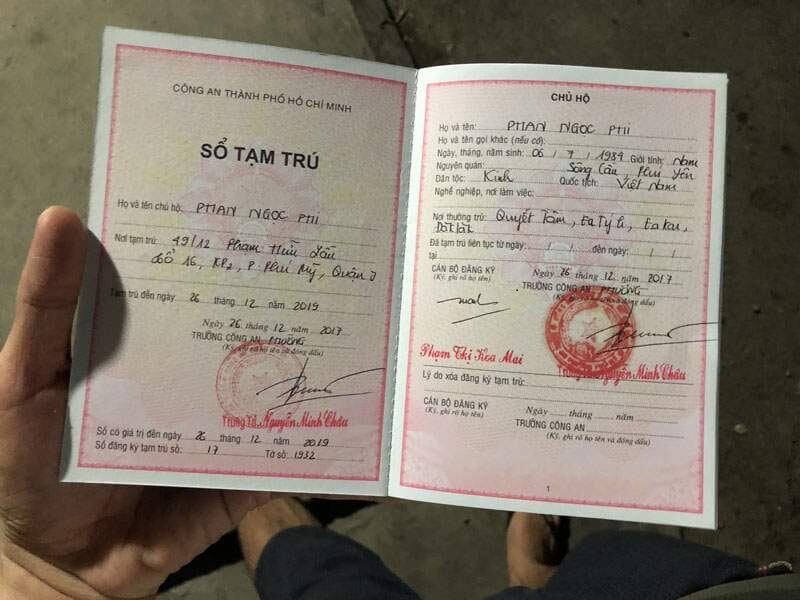 CÔNG AN THÀNH PHỐ HỒ CHÍ MINH
SỔ TẠM TRÚ
Họ và tên chủ hộ: PHAN NGỌC PHI
Nơi tạm trú: 49/12 Phạm Hữu Lầu
tổ 16, KP2, P. Phú Mỹ, Quận 7
Tạm trú đến ngày 26 tháng 12 năm 2019
Ngày 26 tháng 12 năm 2017
TRƯỞNG CÔNG AN PHƯỜNG
(Ký, ghi rõ họ tên và đóng dấu)
Trung Tá Nguyễn Minh Châu
Sổ có giá trị đến ngày 26 tháng 12 năm 2019
Sổ đăng ký tạm trú số: 17 Tờ số: 1932
CHỦ HỘ
Họ và tên: PHAN NGỌC PHI
Họ và tên gọi khác (nếu có):
Ngày, tháng, năm sinh: 06 / 7 / 1984 Giới tính: Nam
Nguyên quán: Sông Cầu, Phú Yên
Dân tộc: Kinh Quốc tịch: Việt Nam
Nghề nghiệp, nơi làm việc:
Nơi thường trú: Quyết Tâm, Ea Tý h, Ea Kar,
Đăk lăk
Đã tạm trú liên tục từ ngày: / / đến ngày: / /
tại
Ngày 26 tháng 12 năm 2017
CÁN BỘ ĐĂNG KÝ TRƯỞNG CÔNG AN PHƯỜNG
(Ký, ghi rõ họ tên) (Ký, ghi rõ họ tên và đóng dấu)
Phạm Thị Hoa Mai Trung Tá Nguyễn Minh Châu
Lý do xóa đăng ký tạm trú:
Ngày ...... tháng ...... năm
CÁN BỘ ĐĂNG KÝ TRƯỞNG CÔNG AN
(Ký, ghi rõ họ tên) (Ký, ghi rõ họ tên và đóng dấu)
1